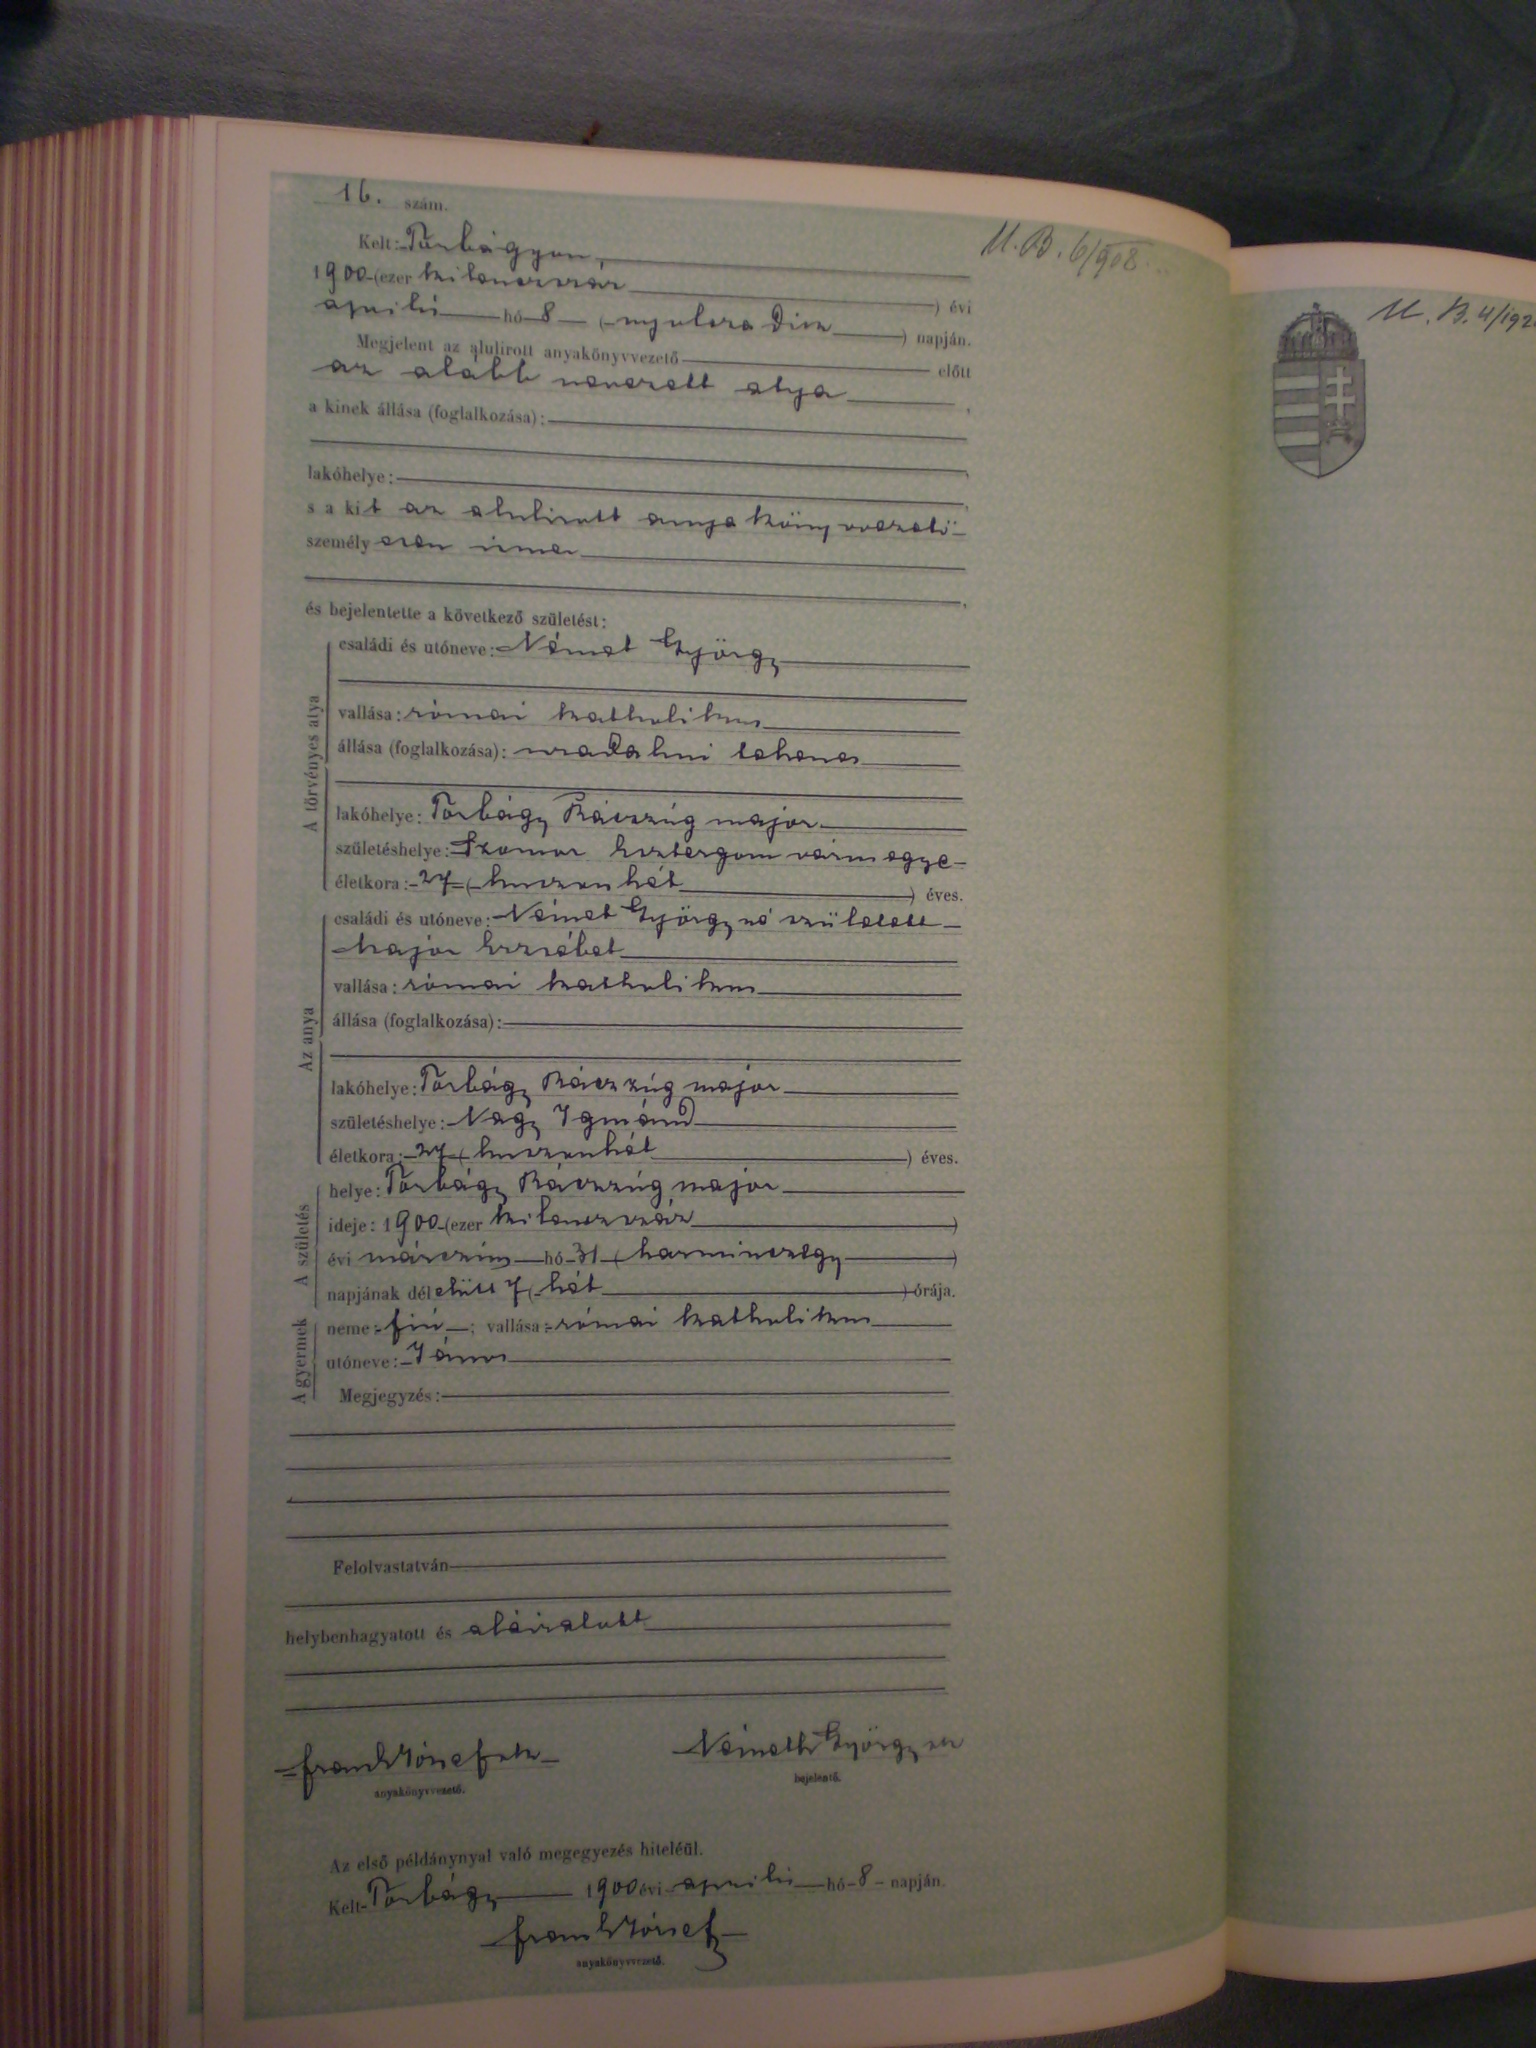 16. szám.
U. B. 6/908
Kelt: Torbágyon,
1900 (ezer kilencszáz ) évi
április hó 8 ( nyolcza dik ) napján.
Megjelent az alulirott anyakönyvvezető előtt
az alább nevezett atya ,
a kinek állása (foglalkozása):
lakóhelye:
s a kit az alulirott anyakönyvvezető
személyesen ismer
és bejelentette a következő születést:
A törvényes atya
családi és utóneve: Német György
vallása: római katholikus
állása (foglalkozása): uradalmi tehenes
lakóhelye: Torbágy Ráczzúg major
születéshelye: Szomor Esztergom vármegye
életkora: 27 ( huszonhét ) éves.
Az anya
családi és utóneve: Német Györgyné született
Major Erzsébet
vallása: római katholikus
állása (foglalkozása):
lakóhelye: Torbágy Ráczzúg major
születéshelye: Nagy Igmánd
életkora: 27 ( huszonhét ) éves.
A születés
helye: Torbágy Ráczzúg major
ideje: 1900 (ezer kilenczszáz )
évi márczius hó 31 ( harminczegy )
napjának délelőtt 7 ( hét ) órája.
A gyermek
neme: fiú ; vallása: római katholikus
utóneve: János
Megjegyzés:
Felolvastatván
helybenhagyatott és aláiratott
Frank József
anyakönyvvezető.
Németh György
bejelentő.
Az első példánynyal való megegyezés hiteléül.
Kelt Torbágy 1900 évi április hó 8 napján.
Frank József
anyakönyvvezető.
U. B. 4/192